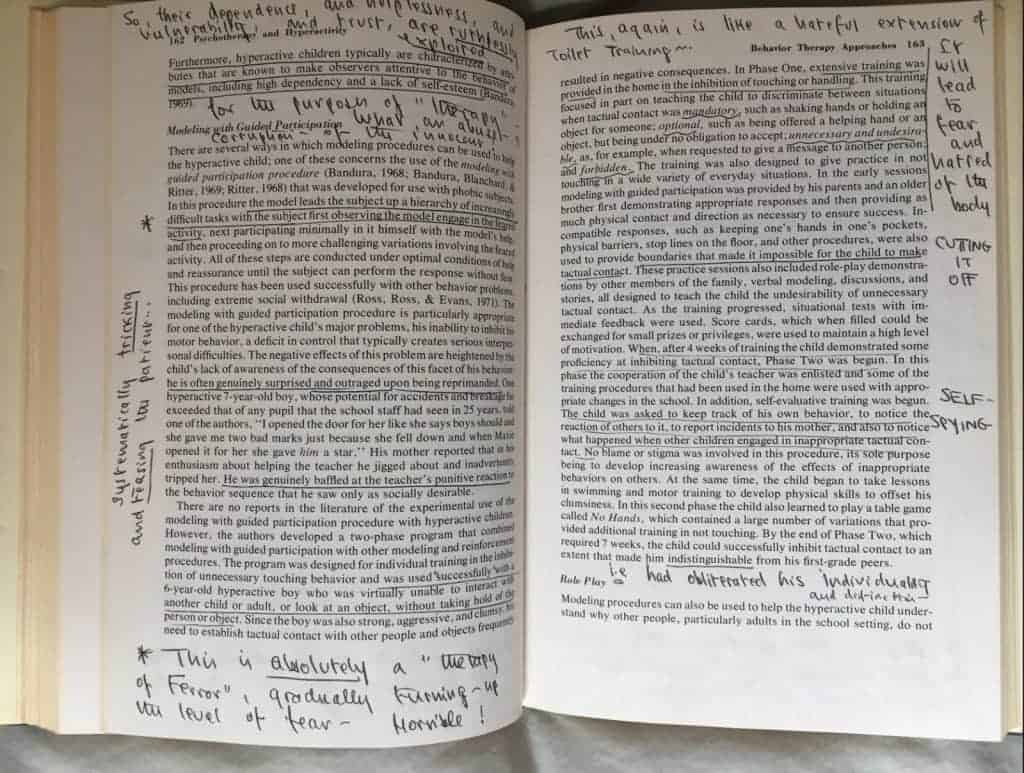 So, their dependence, and helplessness, and
vulnerability and trust, are ruthlessly
exploited
162 Psychotherapy and Hyperactivity
Furthermore, hyperactive children typically are characterized by attri-
butes that are known to make observers attentive to the behavior of
models, including high dependency and a lack of self-esteem (Bandura,
1969).
for the purposes of "therapy".
What an abuse + corruption of the innocent
Modeling with Guided Participation
There are several ways in which modeling procedures can be used to help
the hyperactive child; one of these concerns the use of the modeling with
guided participation procedure (Bandura, 1968; Bandura, Blanchard, &
Ritter, 1969; Ritter, 1968) that was developed for use with phobic subjects.
In this procedure the model leads the subject up a hierarchy of increasingly
difficult tasks with the subject first observing the model engage in the feared
activity, next participating minimally in it himself with the model's help,
and then proceeding on to more challenging variations involving the feared
activity. All of these steps are conducted under optimal conditions of help
and reassurance until the subject can perform the response without fear.
This procedure has been used successfully with other behavior problems,
including extreme social withdrawal (Ross, Ross, & Evans, 1971). The
modeling with guided participation procedure is particularly appropriate
for one of the hyperactive child's major problems, his inability to inhibit his
motor behavior, a deficit in control that typically creates serious interper-
sonal difficulties. The negative effects of this problem are heightened by the
child's lack of awareness of the consequences of this facet of his behavior:
he is often genuinely surprised and outraged upon being reprimanded. One
hyperactive 7-year-old boy, whose potential for accidents and breakage far
exceeded that of any pupil that the school staff had seen in 25 years, told
one of the authors, "I opened the door for her like she says boys should and
she gave me two bad marks just because she fell down and when Matie
opened it for her she gave him a star." His mother reported that in his
enthusiasm about helping the teacher he jigged about and inadvertently
tripped her. He was genuinely baffled at the teacher's punitive reaction to
the behavior sequence that he saw only as socially desirable.
There are no reports in the literature of the experimental use of the
modeling with guided participation procedure with hyperactive children.
However, the authors developed a two-phase program that combined
modeling with guided participation with other modeling and reinforcement
procedures. The program was designed for individual training in the inhibi-
tion of unnecessary touching behavior and was used successfully with a
6-year-old hyperactive boy who was virtually unable to interact with
another child or adult, or look at an object, without taking hold of the
person or object. Since the boy was also strong, aggressive, and clumsy, his
need to establish tactual contact with other people and objects frequently
*
systematically tricking
and teasing the patient...
* This is absolutely a "therapy
of Terror", gradually turning-up
the level of fear - Horrible!
This, again, is like a hateful extension of
Toilet Training ~
Behavior Therapy Approaches 163
resulted in negative consequences. In Phase One, extensive training was
provided in the home in the inhibition of touching or handling. This training
focused in part on teaching the child to discriminate between situations
when tactual contact was mandatory, such as shaking hands or holding an
object for someone; optional, such as being offered a helping hand or an
object, but being under no obligation to accept; unnecessary and undesira-
ble, as, for example, when requested to give a message to another person;
and forbidden. The training was also designed to give practice in not
touching in a wide variety of everyday situations. In the early sessions
modeling with guided participation was provided by his parents and an older
brother first demonstrating appropriate responses and then providing as
much physical contact and direction as necessary to ensure success. In-
compatible responses, such as keeping one's hands in one's pockets,
physical barriers, stop lines on the floor, and other procedures, were also
used to provide boundaries that made it impossible for the child to make
tactual contact. These practice sessions also included role-play demonstra-
tions by other members of the family, verbal modeling, discussions, and
stories, all designed to teach the child the undesirability of unnecessary
tactual contact. As the training progressed, situational tests with im-
mediate feedback were used. Score cards, which when filled could be
exchanged for small prizes or privileges, were used to maintain a high level
of motivation. When, after 4 weeks of training the child demonstrated some
proficiency at inhibiting tactual contact, Phase Two was begun. In this
phase the cooperation of the child's teacher was enlisted and some of the
training procedures that had been used in the home were used with appro-
priate changes in the school. In addition, self-evaluative training was begun.
The child was asked to keep track of his own behavior, to notice the
reaction of others to it, to report incidents to his mother, and also to notice
what happened when other children engaged in inappropriate tactual con-
tact. No blame or stigma was involved in this procedure, its sole purpose
being to develop increasing awareness of the effects of inappropriate
behaviors on others. At the same time, the child began to take lessons
in swimming and motor training to develop physical skills to offset his
clumsiness. In this second phase the child also learned to play a table game
called No Hands, which contained a large number of variations that pro-
vided additional training in not touching. By the end of Phase Two, which
required 7 weeks, the child could successfully inhibit tactual contact to an
extent that made him indistinguishable from his first-grade peers.
i.e. had obliterated his individuality
and distinction
Role Play
Modeling procedures can also be used to help the hyperactive child under-
stand why other people, particularly adults in the school setting, do not
It
will
lead
to
fear
and
hatred
of the
body
CUTTING
IT
OFF
SELF-
SPYING